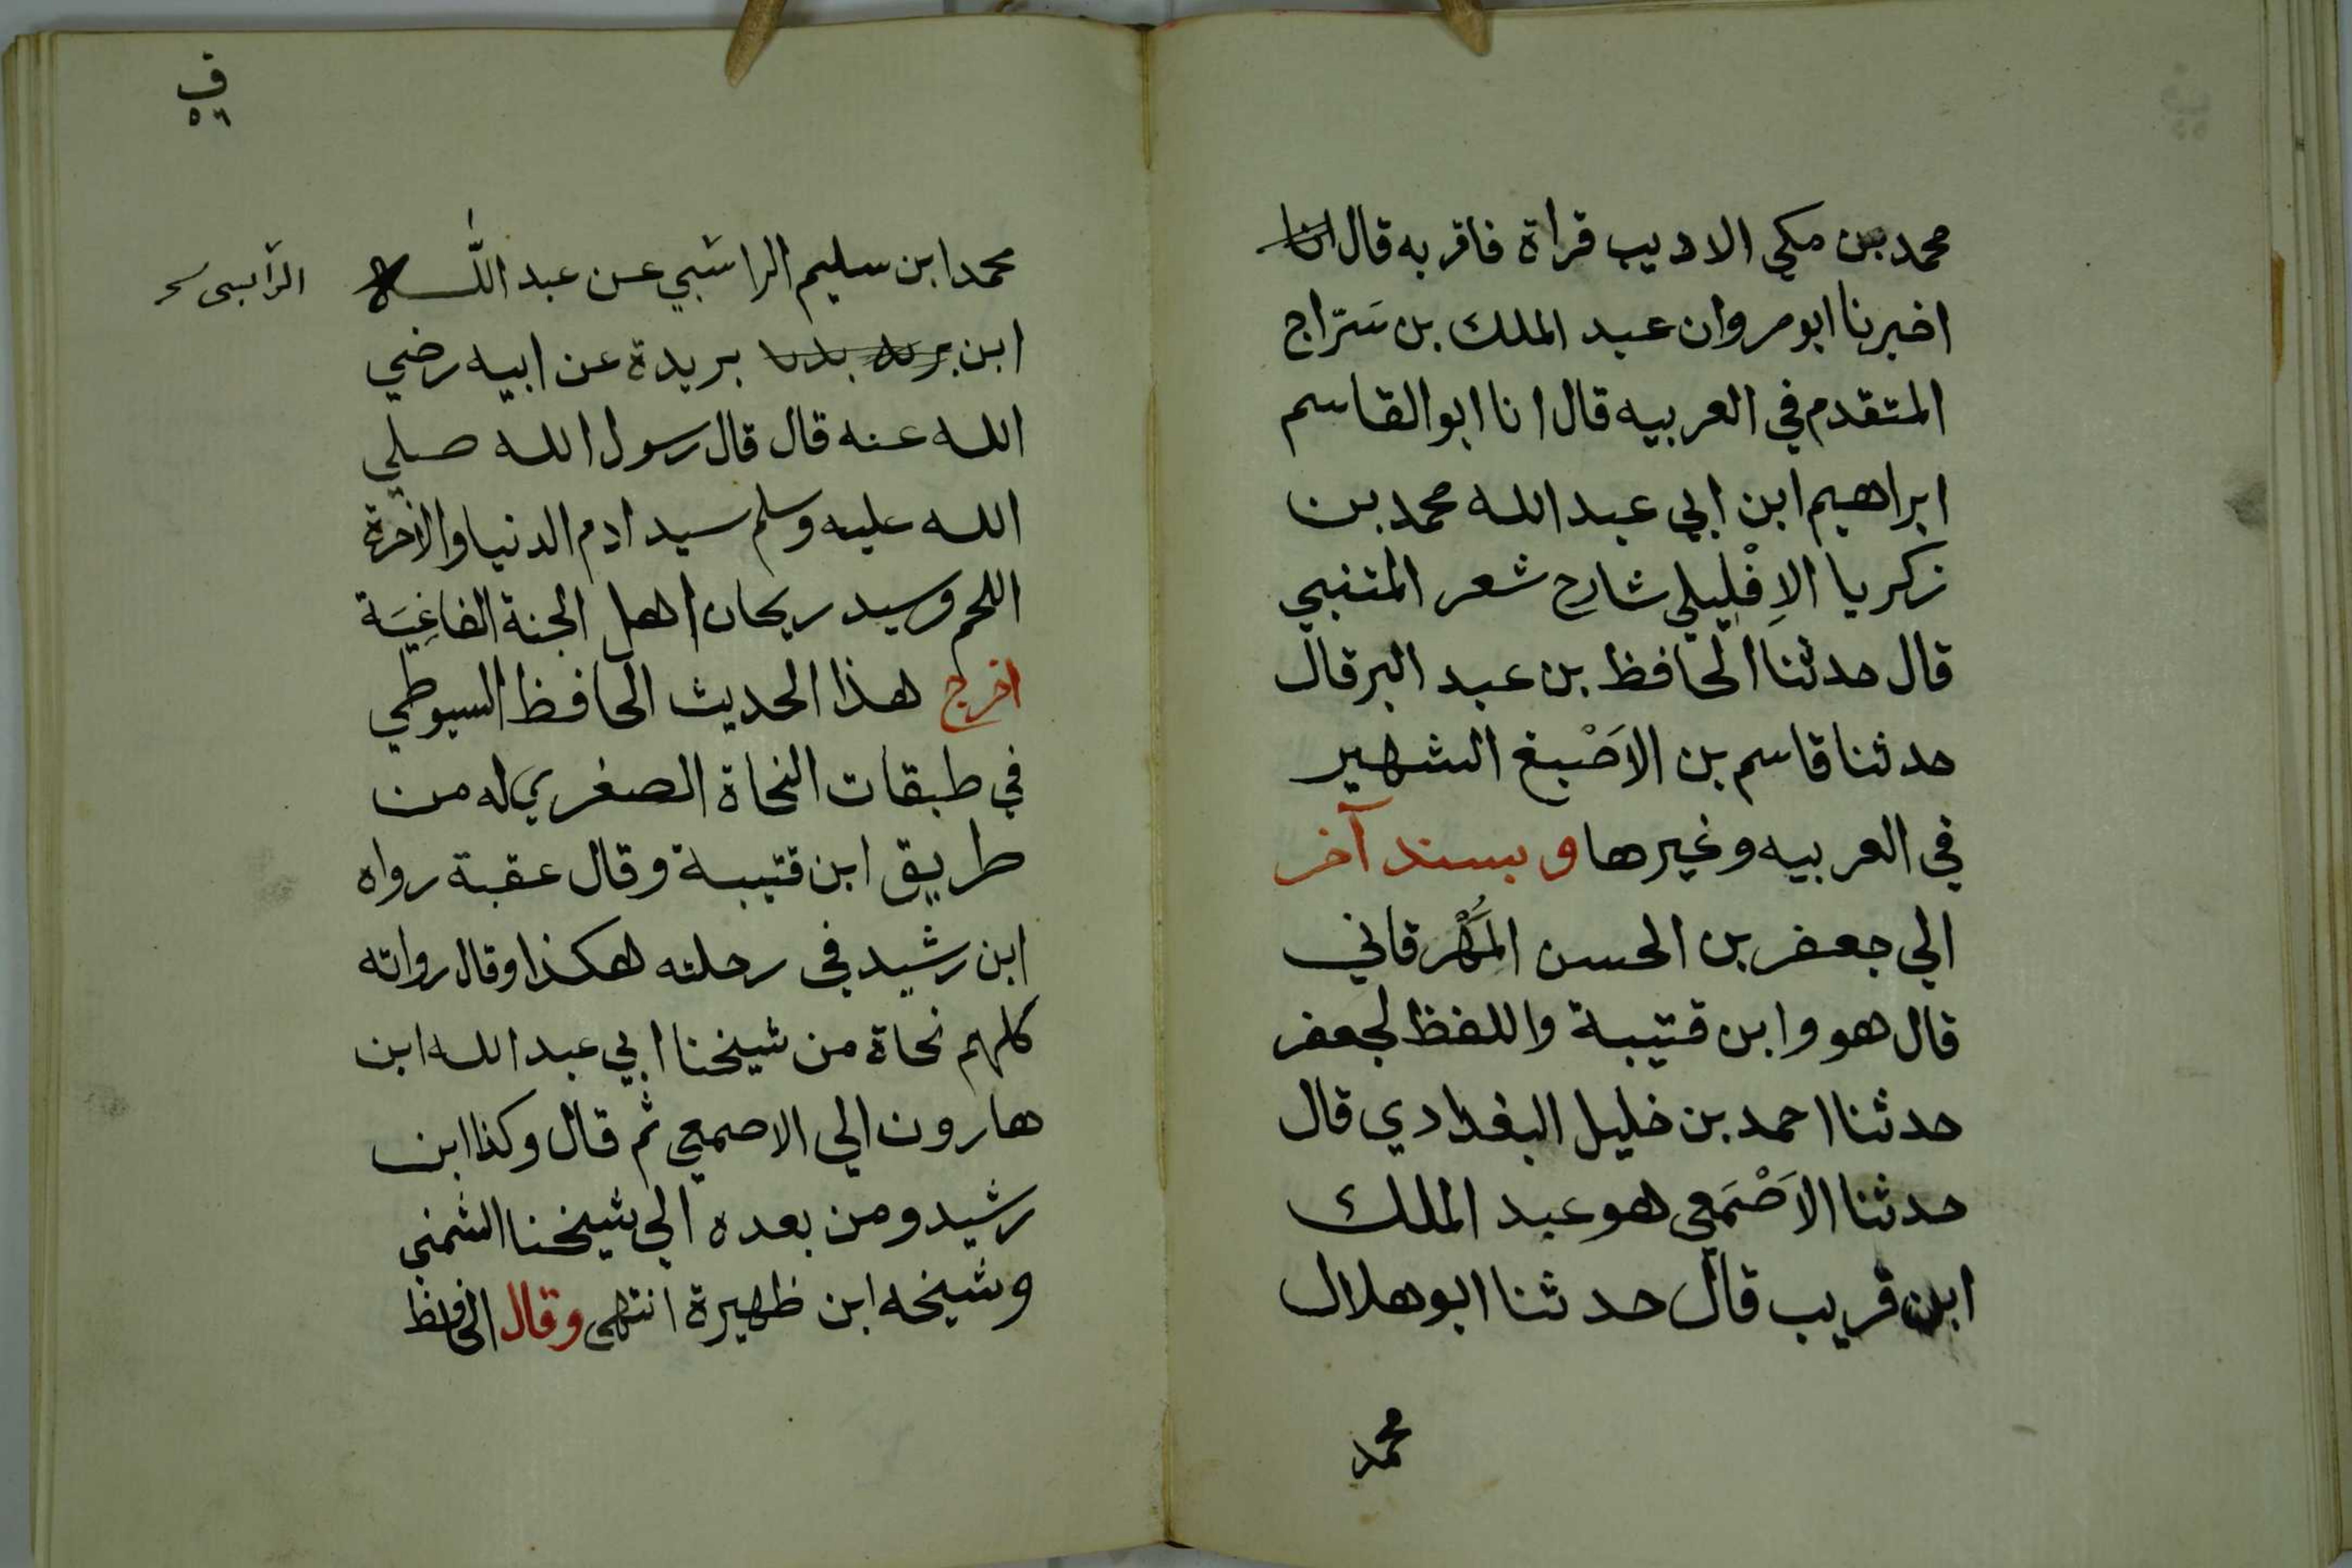 محمد بن مكي الاديب قراة فاقر به قال انا
اخبرنا ابو مروان عبد الملك بن سَرّاج
المتقدم في العربيه قال انا ابو القاسم
ابراهيم ابن ابي عبد الله محمد بن
زكريا الاِفْلِيلي شارح شعر المتنبي
قال حدثنا الحافظ بن عبد البر قال
حدثنا قاسم بن الاَصْبغ الشهير
في العربيه وغيرها وبسند آخر
الي جعفر بن الحسن المَهْرُقاني
قال هو وابن قتيبة واللفظ لجعفر
حدثنا احمد بن خليل البغدادي قال
حدثنا الاَصْمَعي هو عبد الملك
ابن قريب قال حدثنا ابو هلال
محمد
في
٥٦
محمد ابن سليم الراشبي عن عبد اللّٰه
الراسبي
ابن بريدة عن ابيه رضي
الله عنه قال قال رسول الله صلي
الله عليه وسلم سيد ادم الدنيا والاخرة
اللحم وسيد ريحان اهل الجنة الفاغِيَة
اخرج هذا الحديث الحافظ السيوطي
في طبقات النحاة الصغري له من
طريق ابن قتيبة وقال عقبة رواه
ابن رشيد في رحلته هكذا وقال رواته
كلهم نحاة من شيخنا ابي عبد الله ابن
هارون الي الاصمعي ثم قال وكذا ابن
رشيد ومن بعده الي شيخنا الشمني
وشيخه ابن ظهيرة انتهى وقال الحافظ